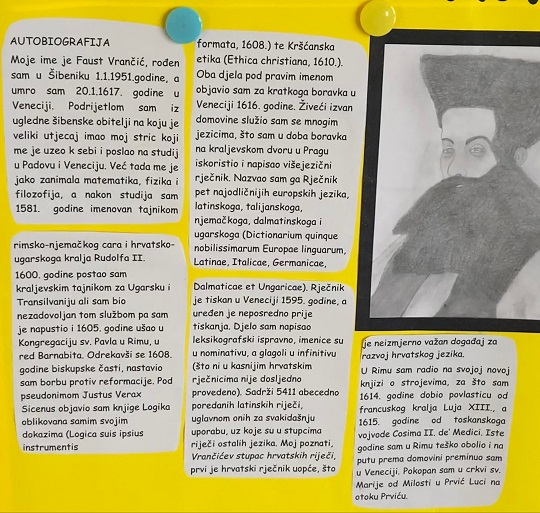 AUTOBIOGRAFIJA
Moje ime je Faust Vrančić, rođen
sam u Šibeniku 1.1.1951.godine, a
umro sam 20.1.1617. godine u
Veneciji. Podrijetlom sam iz
ugledne šibenske obitelji na koju je
veliki utjecaj imao moj stric koji
me je uzeo k sebi i poslao na studij
u Padovu i Veneciju. Već tada me je
jako zanimala matematika, fizika i
filozofija, a nakon studija sam
1581. godine imenovan tajnikom
rimsko-njemačkog cara i hrvatsko-
ugarskoga kralja Rudolfa II.
1600. godine postao sam
kraljevskim tajnikom za Ugarsku i
Transilvaniju ali sam bio
nezadovoljan tom službom pa sam
je napustio i 1605. godine ušao u
Kongregaciju sv. Pavla u Rimu, u
red Barnabita. Odrekavši se 1608.
godine biskupske časti, nastavio
sam borbu protiv reformacije. Pod
pseudonimom Justus Verax
Sicenus objavio sam knjige Logika
oblikovana samim svojim
dokazima (Logica suis ipsius
instrumentis
formata, 1608.) te Kršćanska
etika (Ethica christiana, 1610.).
Oba djela pod pravim imenom
objavio sam za kratkoga boravka u
Veneciji 1616. godine. Živeći izvan
domovine služio sam se mnogim
jezicima, što sam u doba boravka
na kraljevskom dvoru u Pragu
iskoristio i napisao višejezični
rječnik. Nazvao sam ga Rječnik
pet najodličnijih europskih jezika,
latinskoga, talijanskoga,
njemačkoga, dalmatinskoga i
ugarskoga (Dictionarium quinque
nobilissimarum Europae linguarum,
Latinae, Italicae, Germanicae,
Dalmaticae et Ungaricae). Rječnik
je tiskan u Veneciji 1595. godine, a
uređen je neposredno prije
tiskanja. Djelo sam napisao
leksikografski ispravno, imenice su
u nominativu, a glagoli u infinitivu
(što ni u kasnijim hrvatskim
rječnicima nije dosljedno
provedeno). Sadrži 5411 abecedno
poredanih latinskih riječi,
uglavnom onih za svakidašnju
uporabu, uz koje su u stupcima
riječi ostalih jezika. Moj poznati,
Vrančićev stupac hrvatskih riječi,
prvi je hrvatski rječnik uopće, što
je neizmjerno važan događaj za
razvoj hrvatskog jezika.
U Rimu sam radio na svojoj novoj
knjizi o strojevima, za što sam
1614. godine dobio povlasticu od
francuskog kralja Luja XIII., a
1615. godine od toskanskoga
vojvode Cosima II. de' Medici. Iste
godine sam u Rimu teško obolio i na
putu prema domovini preminuo sam
u Veneciji. Pokopan sam u crkvi sv.
Marije od Milosti u Prvić Luci na
otoku Prviću.